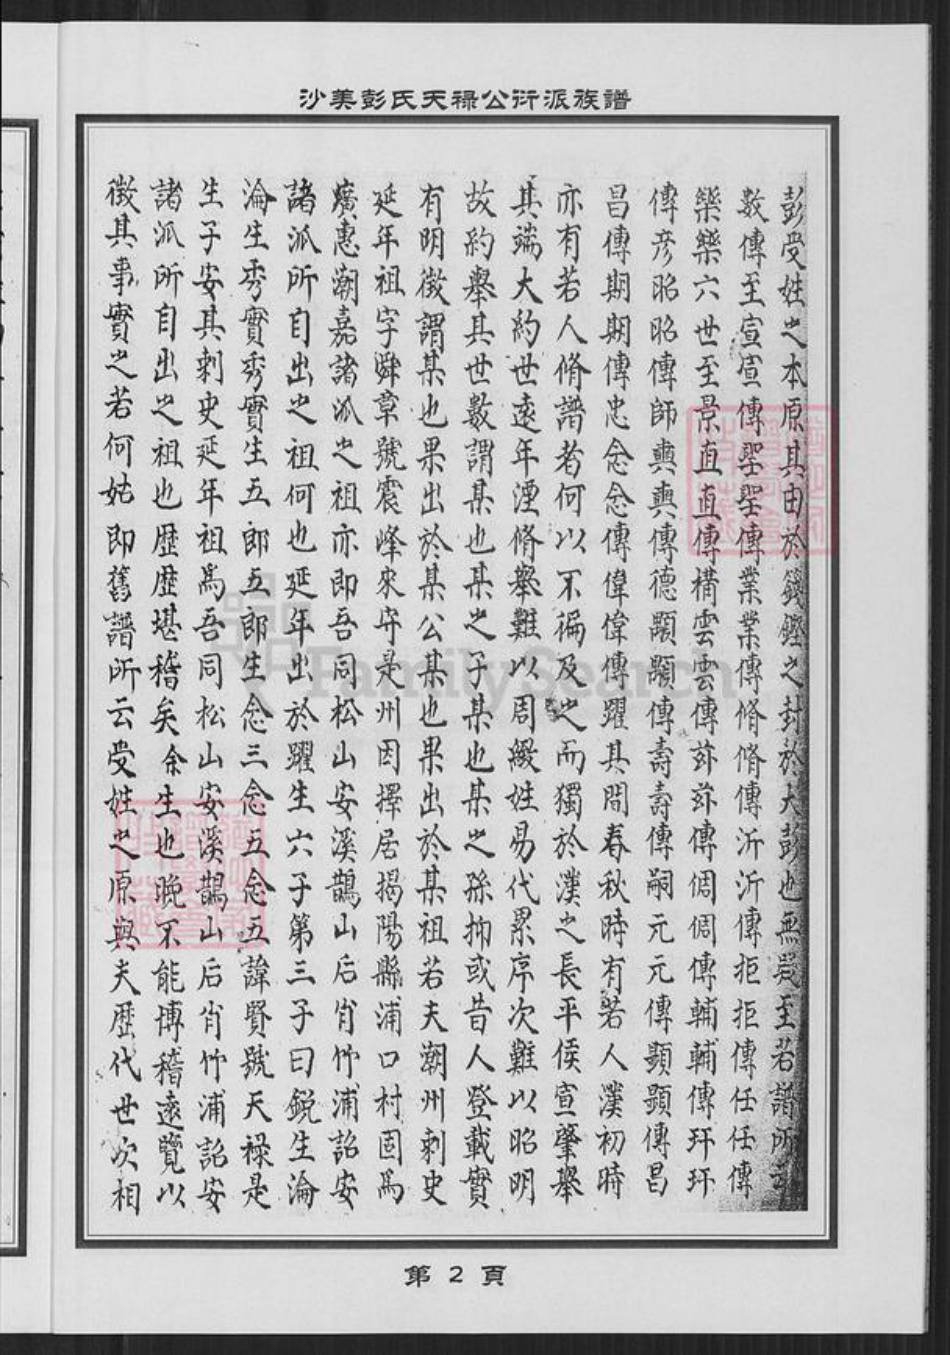 沙美彭氏天祿公衍派族譜
彭受姓之本原其由於籛鏗之封於大彭也無疑至若譜所云
數傳至宣宣傳堅堅傳業業傳脩脩傳沂沂傳拒拒傳任任傳
樂樂六世至景直直傳構雲雲傳玆玆傳倜倜傳輔輔傳玕玕
傳彦昭昭傳師奭奭傳德顒顒傳壽壽傳嗣元元傳顯顯傳昌
昌傳期期傳忠念念傳偉偉傳躍其間春秋時有若人漢初時
亦有若人脩譜者何以不徧及之而獨於漢之長平侯宣肇舉
其端大約世遠年湮脩舉難以周綴姓易代累序次難以昭明
故約舉其世數謂某也某之子某也某之孫抑或昔人登載實
有明徵謂某也果出於某公某也果出於某祖若夫潮州刺史
延年祖字舜章號震峰來守是州因擇居揭陽縣浦口村固爲
廣惠潮嘉諸派之祖亦即吾同松山安溪鵲山后肖竹浦詔安
諸派所自出之祖何也延年出於躍生六子第三子曰銳生淪
淪生秀實秀實生五郎五郎生念三念五念五諱賢號天祿是
生子安其刺史延年祖爲吾同松山安溪鵲山后肖竹浦詔安
諸派所自出之祖也歷歷堪稽矣余生也晚不能博稽遠覽以
徵其事實之若何姑即舊譜所云受姓之原與夫歷代世次相
第 2 頁
FamilySearch